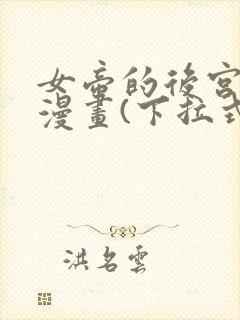 女帝的後宮
漫畫(下拉式
洪名雲